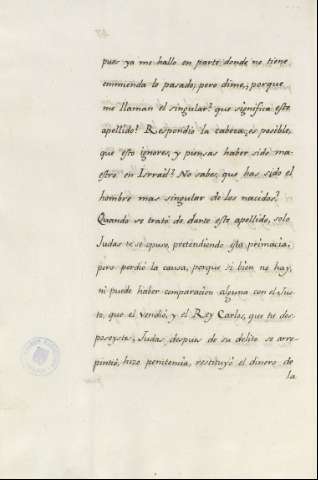 pues ya me hallo en parte donde no tiene
enmienda lo pasado; pero dime, ¿porque
me llaman el singular? que significa este
apellido? Respondio la cabeza: es posible,
que esto ignores, y piensas haber sido ma-
estro en Isrrael? No sabes, que has sido el
hombre mas singular de los nacidos?
Quando se trató de darte este apellido, solo
Judas te se opuso, pretendiendo esta primacia;
pero perdió la causa, porque si bien no hay,
ni puede haber comparacion alguna con el Jus-
to, que el vendió, y el Rey Carlos, que tu des-
poseyste; Judas, despues de su delito se arre-
pintió, hizo penitencia, restituyó el dinero de
la